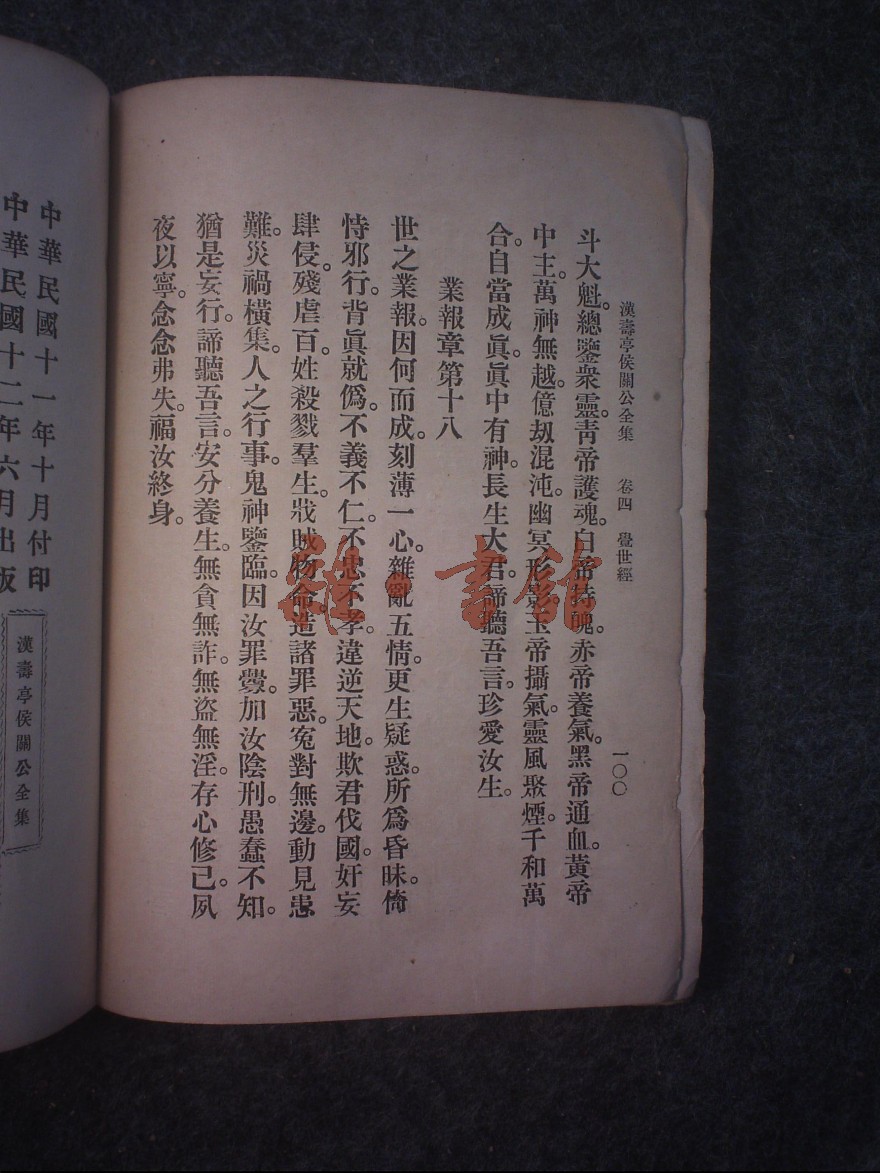 漢壽亭侯關公全集　卷四　覺世經　一〇〇
斗大魁。總鑒衆靈。靑帝護魂。白帝持魄。赤帝養氣。黑帝通血。黃帝
中主。萬神無越。億刼混沌。幽冥形影。玉帝攝氣。靈風聚煙。千和萬
合。自當成眞。眞中有神。長生大君。諦聽吾言。珍愛汝生。
業報章第十八
世之業報。因何而成。刻薄一心。雜亂五情。更生疑惑。所爲昏昧。倚
恃邪行。背眞就僞。不義不仁。不忠不孝。違逆天地。欺君伐國。奸妄
肆侵。殘虐百姓。殺戮羣生。戕賊物命。造諸罪惡。寃對無邊。動見患
難。災禍橫集。人之行事。鬼神鑒臨。因汝罪釁。加汝陰刑。愚蠢不知。
猶是妄行。諦聽吾言。安分養生。無貪無詐。無盜無淫。存心修己。夙
夜以寧。念念弗失。福汝終身。
中華民國十一年十月付印
中華民國十二年六月出版
漢壽亭侯關公全集